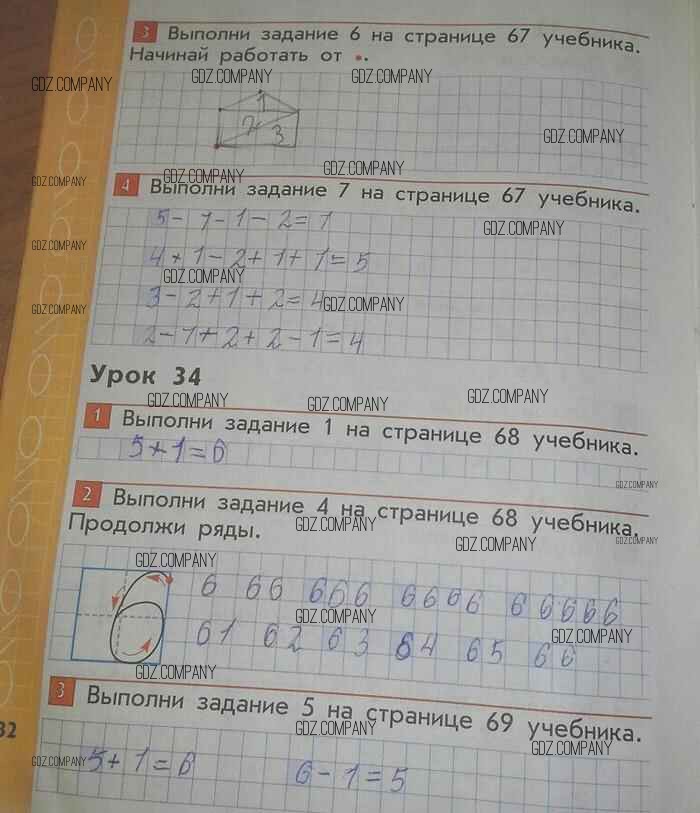 3 Выполни задание 6 на странице 67 учебника.
Начинай работать от •.
GDZ.COMPANY GDZ.COMPANY GDZ.COMPANY
1
2 3
GDZ.COMPANY
GDZ.COMPANY GDZ.COMPANY GDZ.COMPANY
4 Выполни задание 7 на странице 67 учебника.
5-1-1-2=1
GDZ.COMPANY
GDZ.COMPANY
4+1-2+1+1=5
GDZ.COMPANY
3-2+1+2=4
GDZ.COMPANY GDZ.COMPANY
2-1+2+2-1=4
Урок 34
GDZ.COMPANY GDZ.COMPANY GDZ.COMPANY
1 Выполни задание 1 на странице 68 учебника.
5+1=6
GDZ.COMPANY
2 Выполни задание 4 на странице 68 учебника.
Продолжи ряды.
GDZ.COMPANY GDZ.COMPANY GDZ.COMPANY
GDZ.COMPANY
6 66 666 6666 66666
GDZ.COMPANY
61 62 63 64 65 66
GDZ.COMPANY
GDZ.COMPANY
3 Выполни задание 5 на странице 69 учебника.
GDZ.COMPANY GDZ.COMPANY
32
5+1=6 6-1=5
GDZ.COMPANY